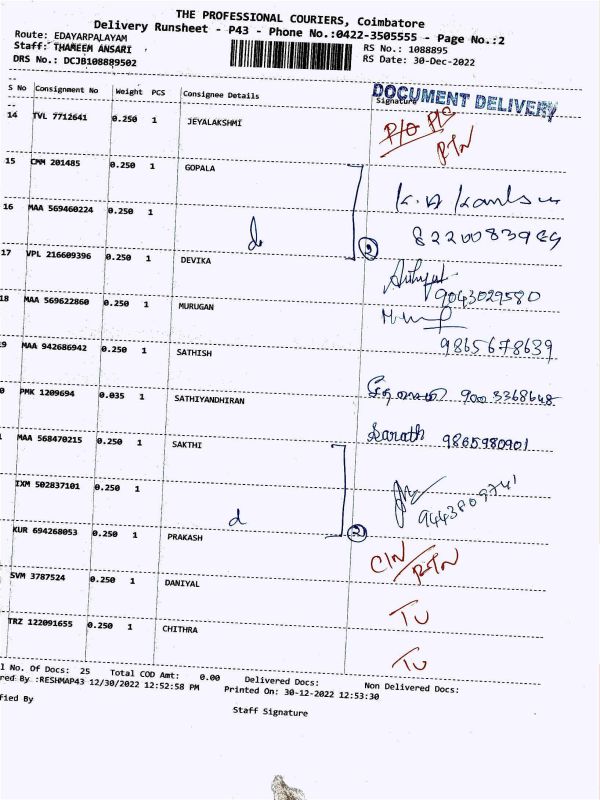 THE PROFESSIONAL COURIERS, Coimbatore
Delivery Runsheet - P43 - Phone No.:0422-3505555 - Page No.:2
Route: EDAYARPALAYAM
Staff: THAMEEM ANSARI
RS No.: 1088895
DRS No.: DCJB108889502
RS Date: 30-Dec-2022
S No Consignment No Weight PCS Consignee Details Signature
DOCUMENT DELIVERY
14 TVL 7712641 0.250 1 JEYALAKSHMI
RTN
15 CMM 201485 0.250 1 GOPALA
16 MAA 569460224 0.250 1
d 2 8220083969
17 VPL 216609396 0.250 1 DEVIKA
9043029580
18 MAA 569622860 0.250 1 MURUGAN
9865678639
9 MAA 942686942 0.250 1 SATHISH
9003368648
0 PMK 1209694 0.035 1 SATHIYANDHIRAN
Sarath 9865980901
MAA 568470215 0.250 1 SAKTHI
9443809741
IXM 502837101 0.250 1
d 2
KUR 694268053 0.250 1 PRAKASH
CIN/RTN
SVM 3787524 0.250 1 DANIYAL
TU
TRZ 122091655 0.250 1 CHITHRA
TU
l No. Of Docs: 25 Total COD Amt: 0.00 Delivered Docs: Non Delivered Docs:
red By :RESHMAP43 12/30/2022 12:52:58 PM Printed On: 30-12-2022 12:53:30
fied By
Staff Signature